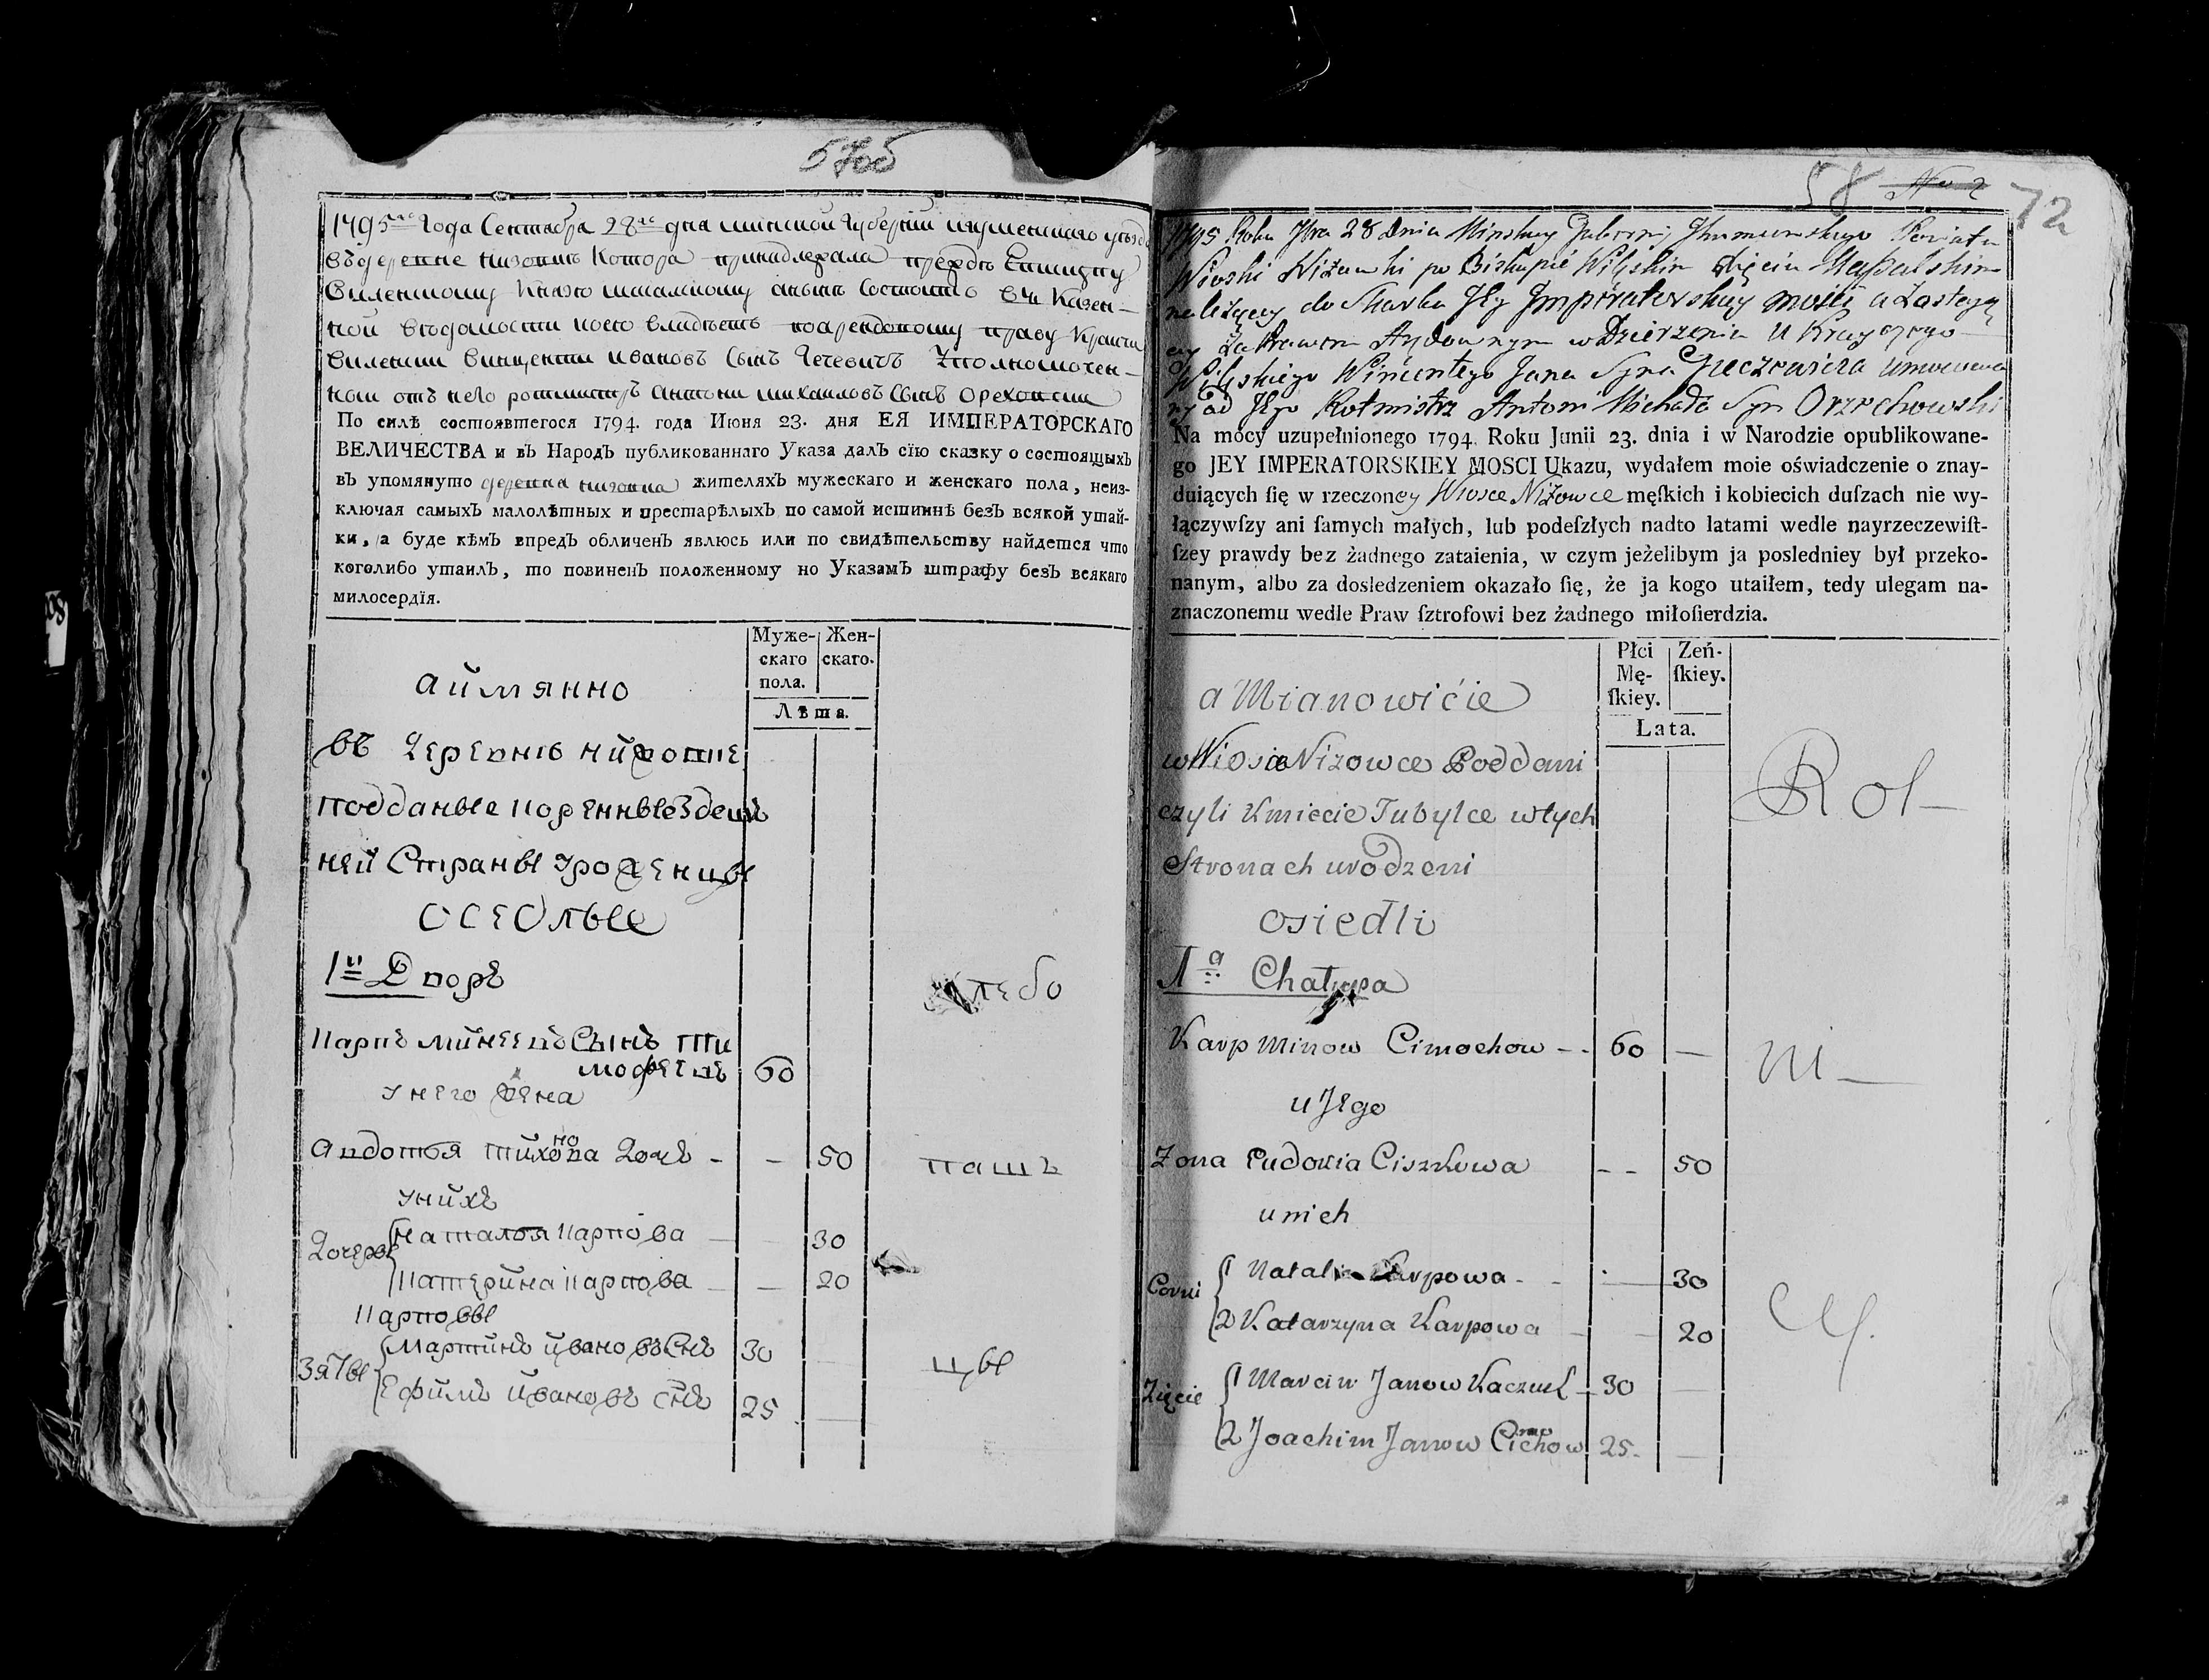 57об
1795го Года Сентабра 28го дня минской губернии игуменскаго уезда
въ деревне низовки Котора принадлежала прежде Епископу
Виленскому Князю масалскому анынъ состоитъ въ Казен-
ной ведомости коею владѣетъ поарендовному праву Крайчи
виленски винценти ивановъ Сынъ Гечевичъ Уполномочен-
ной отъ него ротмистръ антони михаиловъ Сынъ Ореховски
По силѣ состоявшегося 1794. года Июня 23. дня ЕЯ ИМПЕРАТОРСКАГО
ВЕЛИЧЕСТВА и въ Народъ публикованнаго Указа далъ сїю сказку о состоящыхъ
въ упомянуто деревна низовка жителяхъ мужескаго и женскаго пола, неиз-
ключая самыхъ малолѣтных и престарѣлыхъ по самой истиннѣ безъ всякой утай-
ки, а буде кѣмъ впредъ обличенъ явлюсь или по свидѣтельству найдется что
коголибо утаилъ, то повиненъ положенному по Указамъ штрафу безъ всякаго
милосердїя.
Муже- Жен-
скаго скаго.
пола.
Лѣта.
аймянно
въ Деревнѣ Нижовце
подданые коренные здеш
ней Страны уроженцы
оседлые
1й Дворъ
хлебо
Карпъ минеевъ Сынъ Ти
мофеевъ 60
у него жена
авдотья тихонова дочь - - 50
пашъ
у нихъ
Дочеры наталья Карпова — 30
Катерина Карпова — 20
Карповы
Зятьы Мартинъ ивановъ Снъ 30 —
Ефимъ ивановъ Снъ 25 —
цы
58 No 2 72
1795 Roku 7bra 28 Dnia Minskiey Gubernij Ihumenskiego Powiatu
Wioski Nizowki po Biskupie Wileńskim Xięciu Massalskim
należącey do Skarbu Jey Imperatorskiey Mości a zostaję
cey za Prawem Arędownym w Dzierżeniu U Krayczego
Wileńskiego Wincentego Jana Syna Gieczewicza umocowa
ny od Jego Rotmistrz Antoni Michała Syn Orzechowski
Na mocy uzupełnionego 1794. Roku Junii 23. dnia i w Narodzie opublikowane-
go JEY IMPERATORSKIEY MOSCI Ukazu, wydałem moie oświadczenie o znay-
duiących ſię w rzeczoney Wiosce Niżowce męſkich i kobiecich duſzach nie wy-
łączywſzy ani ſamych małych, lub podeſzłych nadto latami wedle nayrzeczewiſt-
ſzey prawdy bez żadnego zataienia, w czym jeżelibym ja posledniey był przeko-
nanym, albo za dosledzeniem okazało ſię, że ja kogo utaiłem, tedy ulegam na-
znaczonemu wedle Praw ſztrofowi bez żadnego miłoſierdzia.
Płci Zeń-
Mę- ſkiey.
ſkiey.
Lata.
a Mianowićie
w Wiosce Nizowce Poddani
czyli Kmiecie Tubylce w tych
Stronach urodzeni
Rol-
osiedli
1a Chałupa
Karp Minow Cimochow - - 60 —
ni—
u Jego
Zona Eudokia Ciszkowa - - 50
u nich
Corki 1 Natalia Karpowa - - — 30
2 Katarzyna Karpowa — 20
cy.
Zięcie 1 Marcin Janow Kaczuk — 30 —
2 Joachim Janow Cimochow 25 —